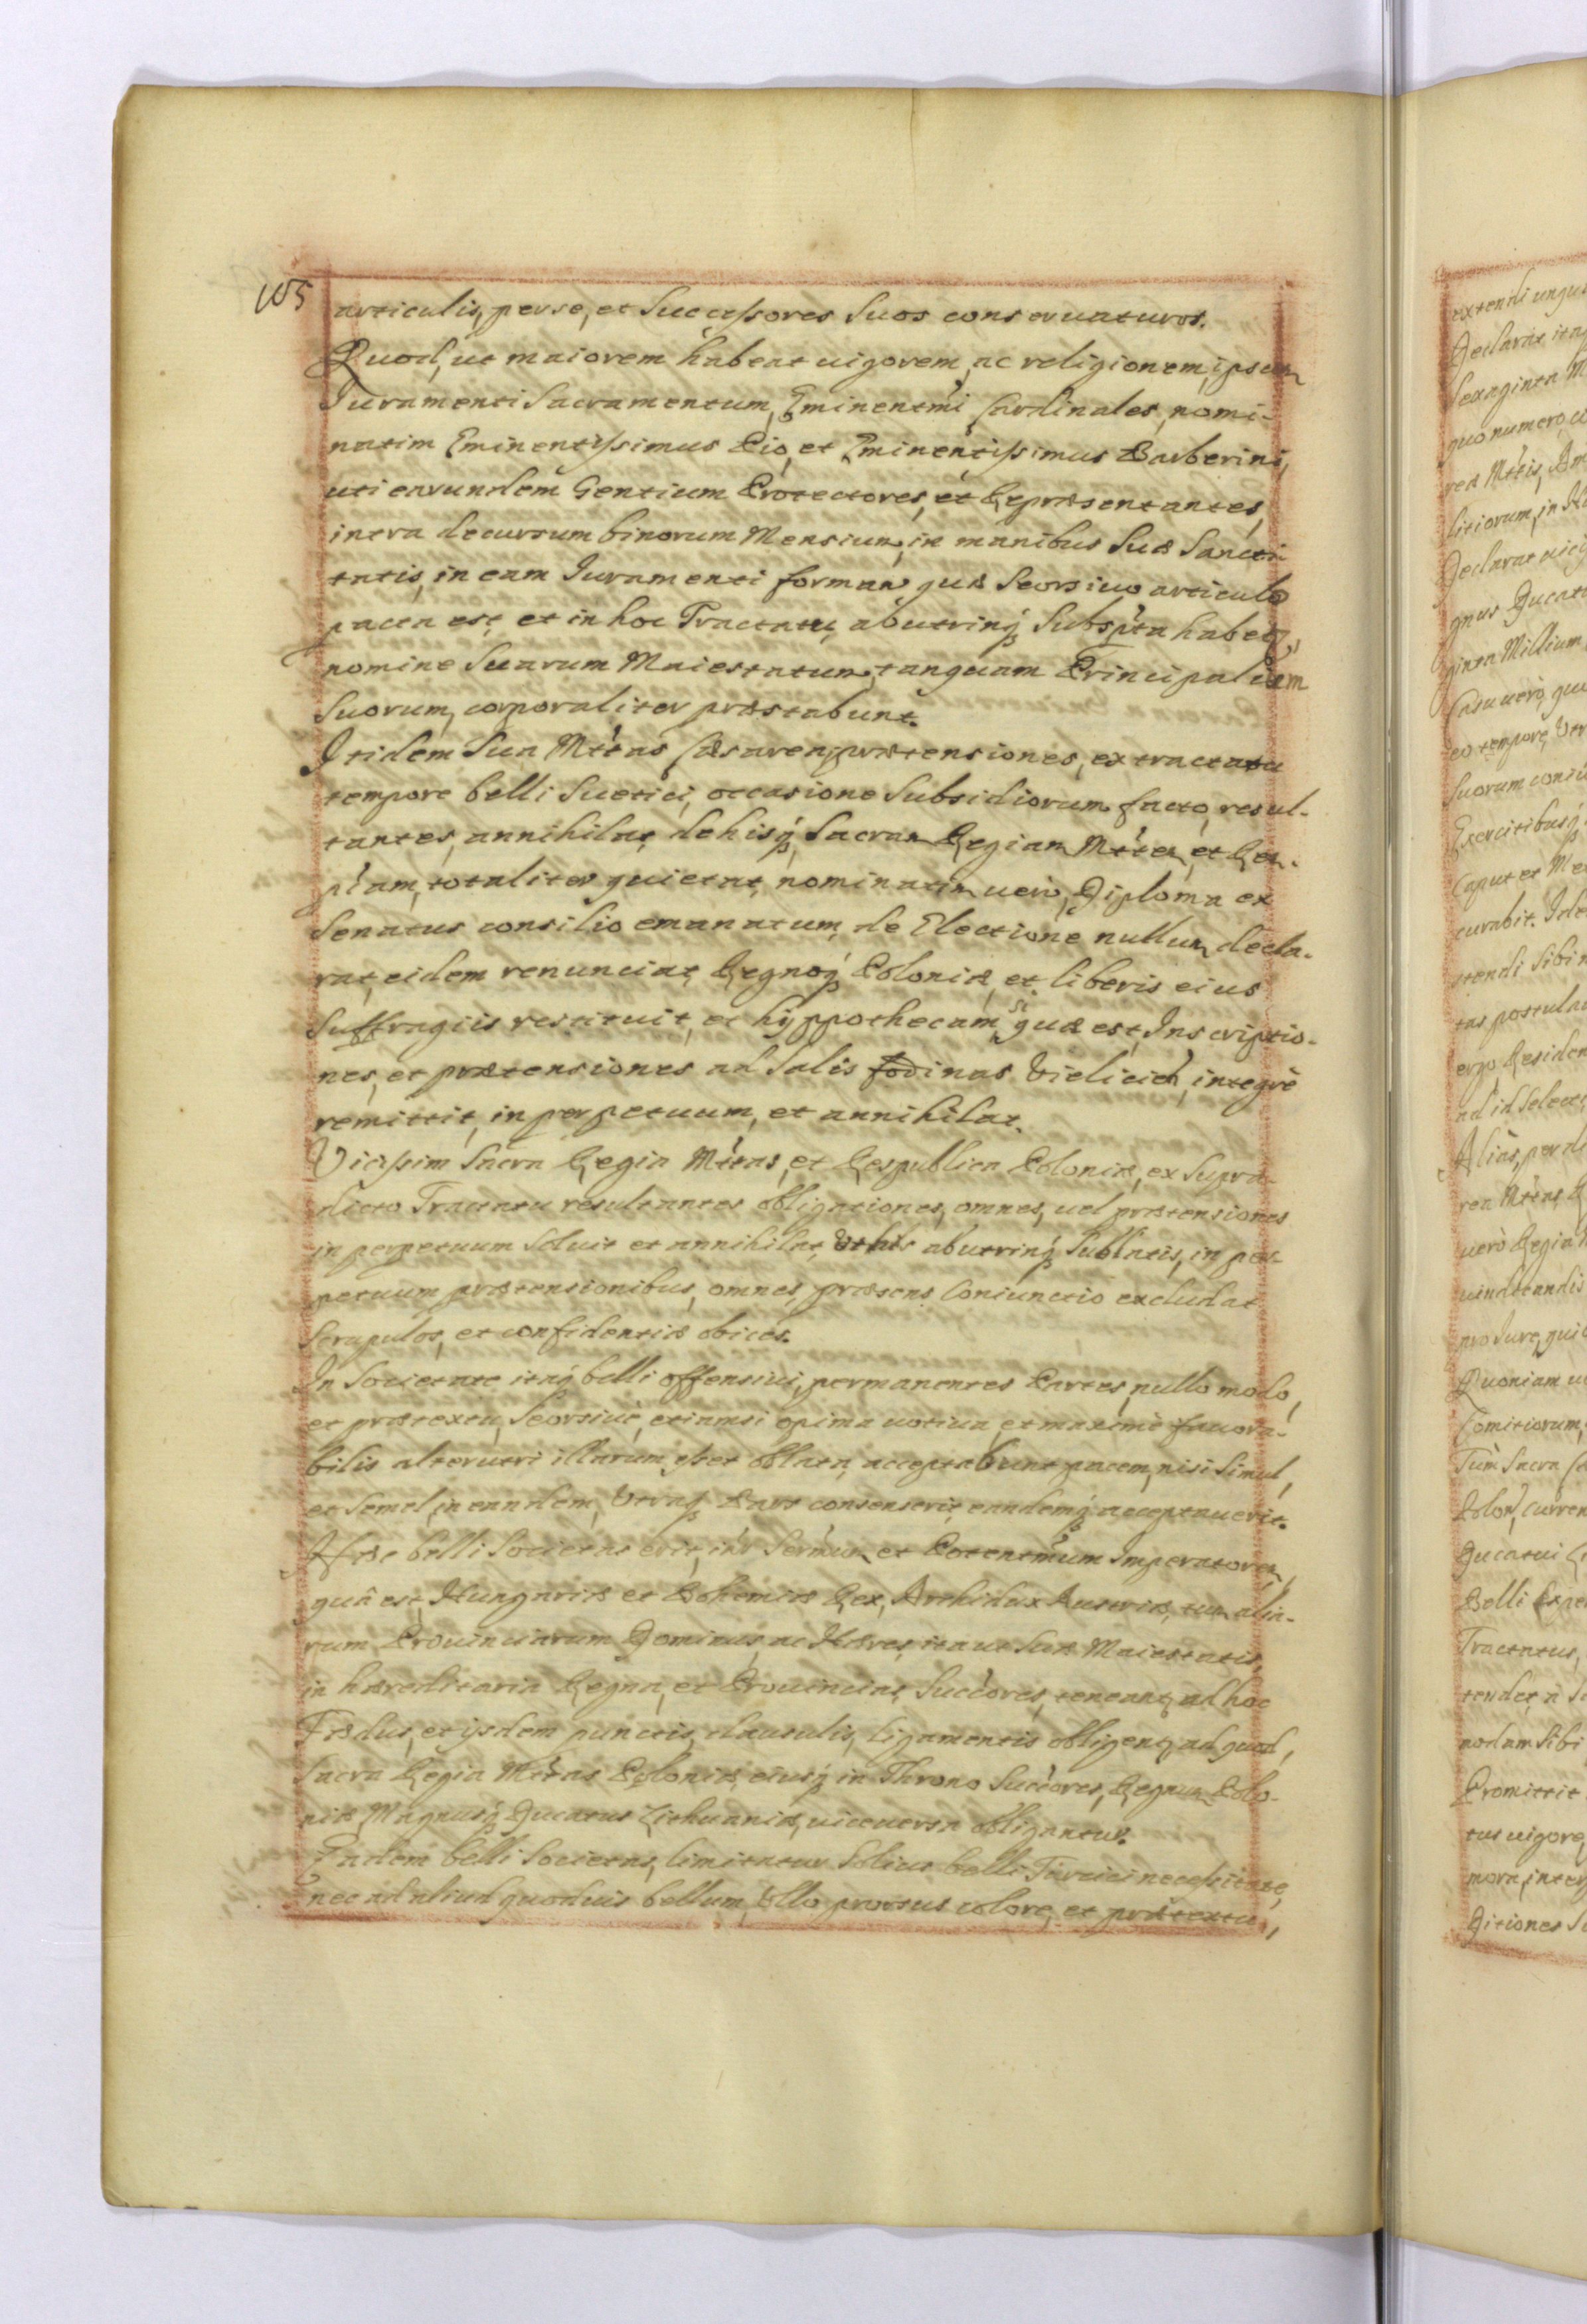 105
articulis, per se, et Successores Suos conseruaturos.
Quod, ut maiorem habeat uigorem, ac religionem, ipsum
Juramenti Sacramentum, Eminentmi Cardinales, nomi-
natim Eminentissimus Pio, et Eminentissimus Barberini,
uti earundem Gentium Protectores, et Repræsentantes,
intra decursum binorum Mensium, in manibus Suæ Sancti-
tatis, in eam Juramenti formam, quæ Seorsiuo articulo
pacta est, et in hoc Tractatu, ab utrinq; Subsptа habetr,
nomine Suarum Maiestatum, tanquam Principalium
Suorum, corporaliter præstabunt.
Itidem Sua Mttas Cæsarea, prætensiones, ex tractatu
tempore belli Suetici, occasione Subsidiorum facto, resul-
tantes, annihilat, de hisq; Sacram Regiam Mttem, et Rem-
ptam, totaliter quietat, nominatim uerò, Diploma ex
Senatus consilio emanatum, de Electione nullum decla-
rat, eidem renunciat, Regnoq; Poloniæ, et liberis eius
Suffragiis restituit, et hÿppothecam, si quæ est, Inscriptio-
nes, et prætensiones ad Salis fodinas Vielicien, integrè
remittit, in perpetuum, et annihilat.
Vicissim Sacra Regia Mttas, et Respublica Poloniæ, ex Supra-
dicto Tractatu resultantes obligationes, omnes, uel prætensiones
in perpetuum Soluit et annihilat, Vt his ab utrinq; Sublatis, in per-
petuum prætensionibus, omnes, præsens Coniunctio excludat
Scrupulos, et confidentiæ obices.
In Societate itaq; belli offensiui, permanentes Partes, nullo modo,
et prætextu, Seorsiuè, etiamsi opima uotiua, et maximè fauora-
bilis alterutri illarum esset oblata, acceptabunt pacem, nisi Simul,
et Semel, in eandem, Vtraq; Pars consenserit, eandemq; acceptauerit.
Hæc belli Societas erit, intr Sermum et Potentmum Imperatorem,
quâ est, Hungariæ et Bohemiæ Rex, Archidux Austriæ, tum alia-
rum Prouinciarum Dominus, ac Hæres, ita ut Suæ Maiestatis,
in hæreditaria Regna, et Prouincias, Succores, teneantr, ad hoc
Fædus, et ijsdem punctis, clausulis, ligamentis obligentr, ad quod,
Sacra Regia Mttas Poloniæ, eiusq; in Throno Succores, Regnum Polo-
niæ Magnusq; Ducatus Lithuaniæ, uice uersa obligantur.
Eadem belli Societas, limitatur Solius belli Turcici necessitate,
nec ad aliud quoduis bellum, Vllo prorsus colore, et prætextu,